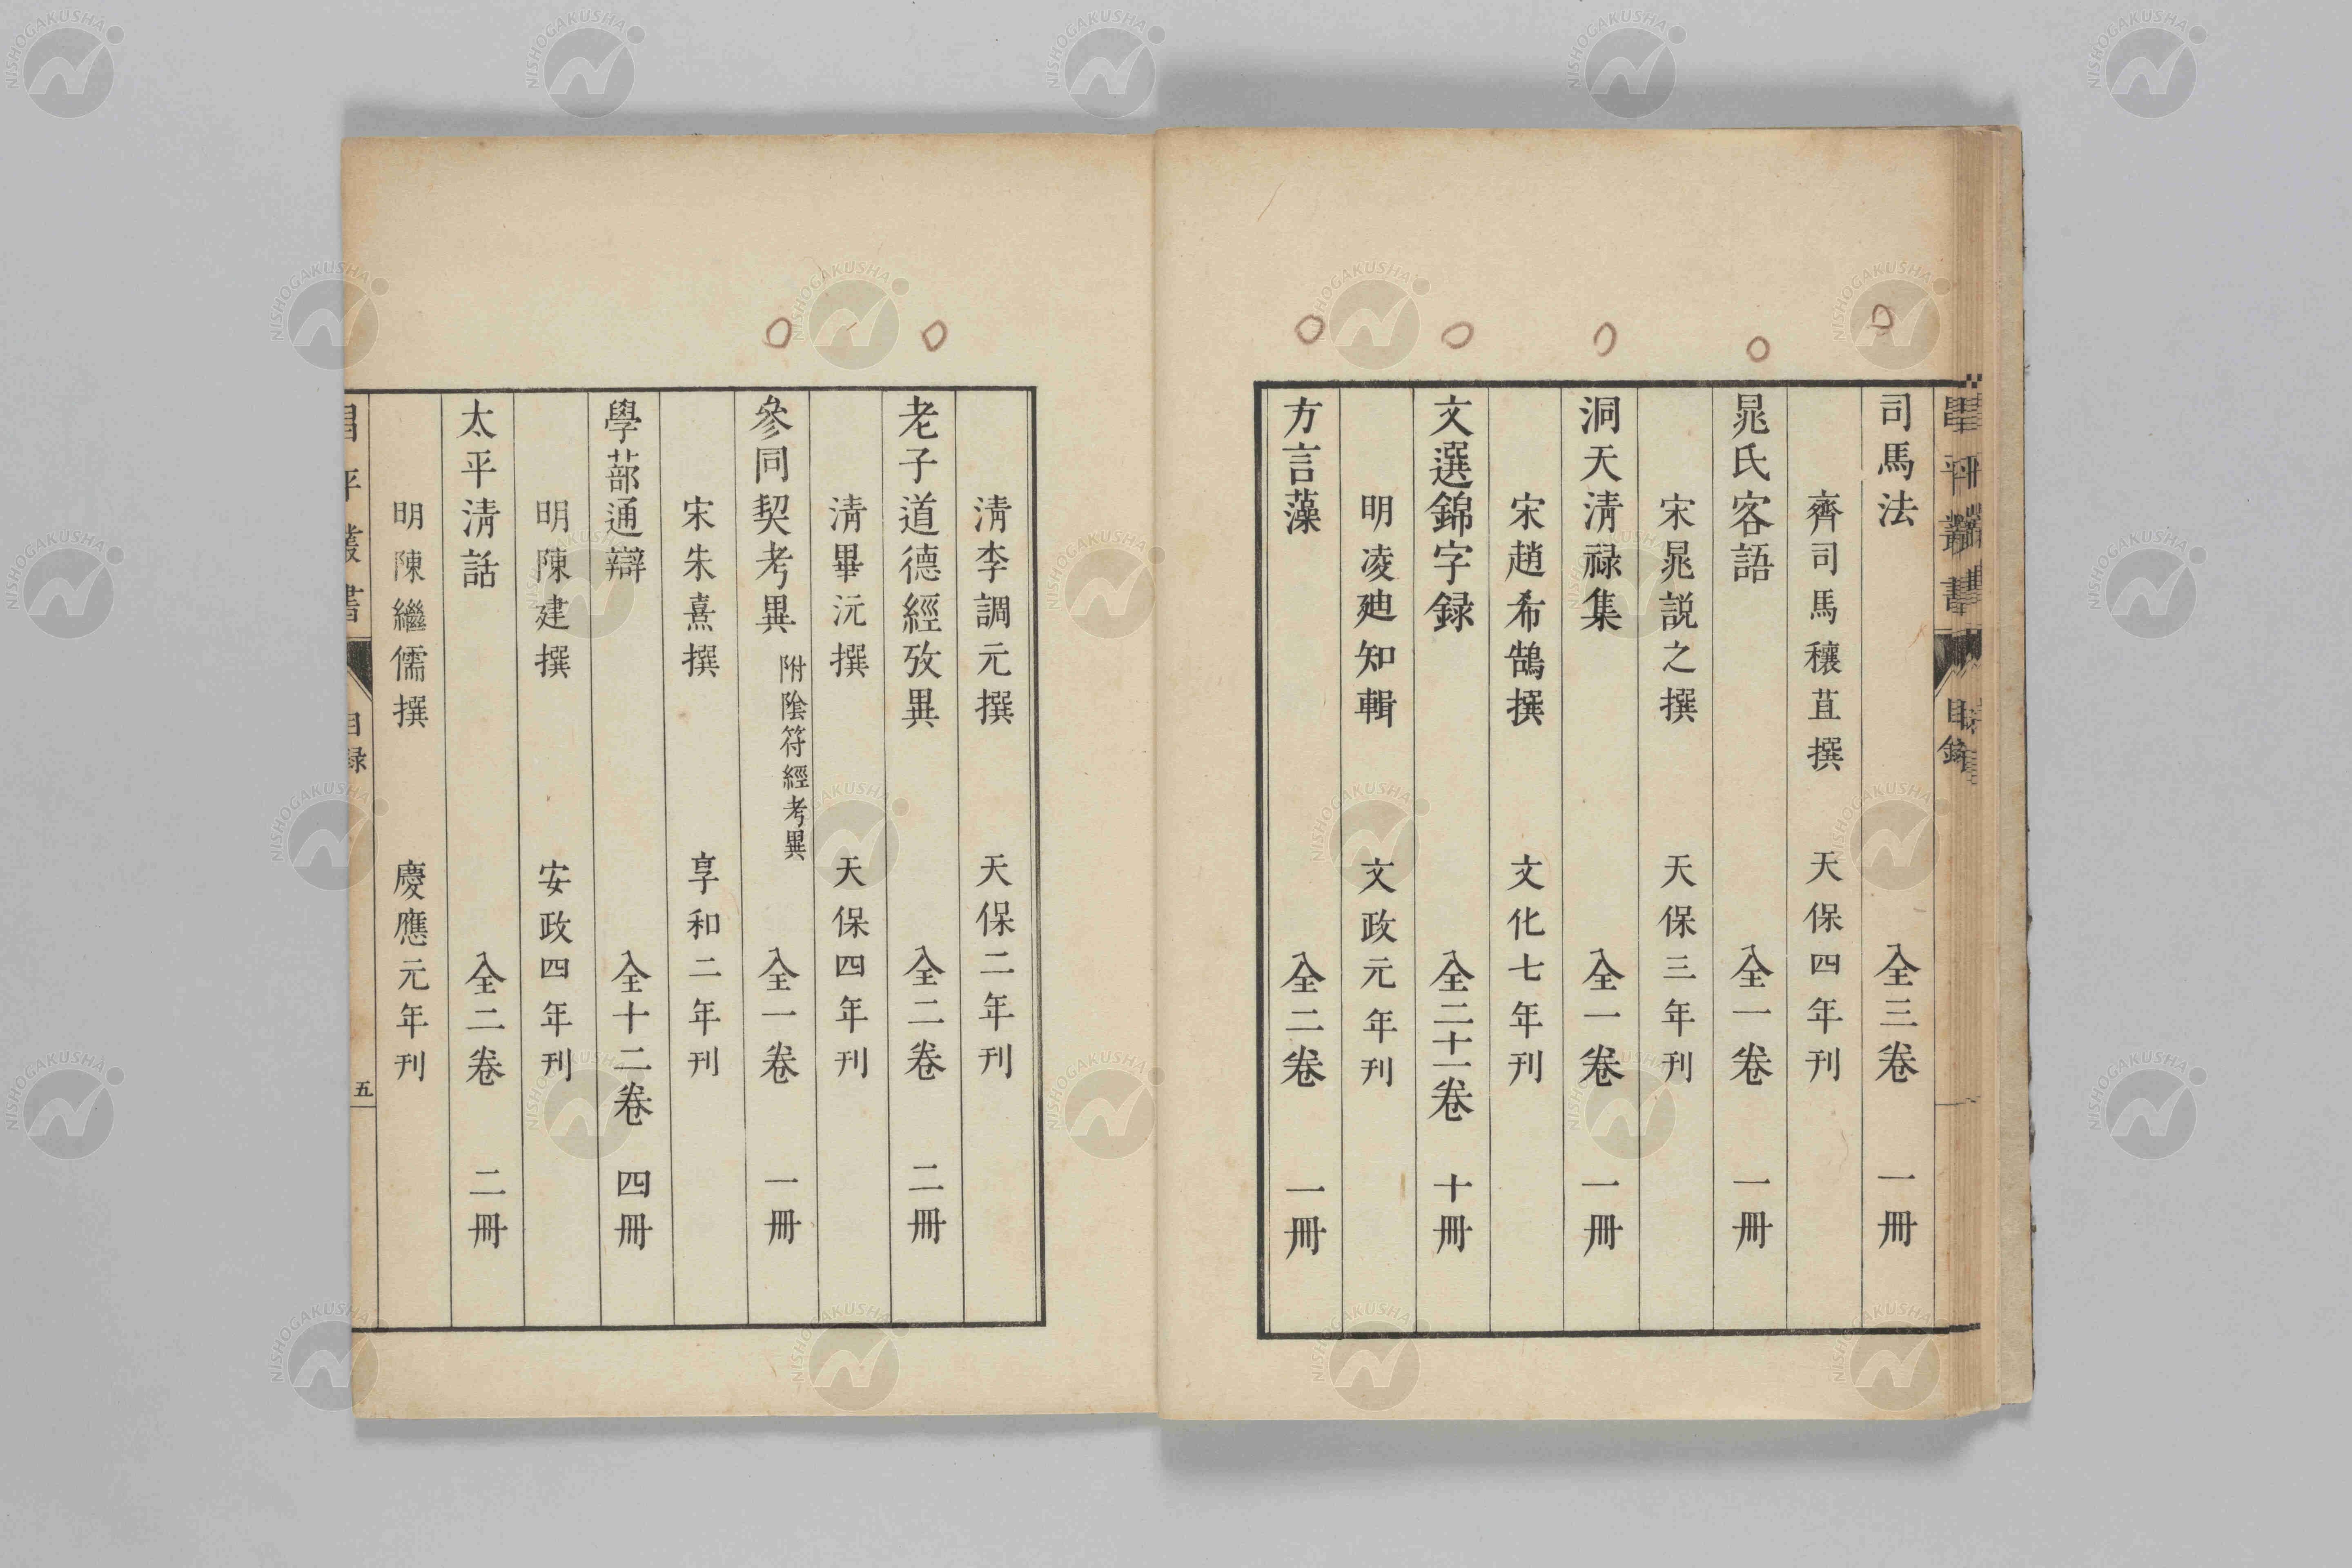 司馬法 全三卷 一冊
齊司馬穰苴撰 天保四年刊
晁氏客語 全一卷 一冊
宋晁説之撰 天保三年刊
洞天清祿集 全一卷 一冊
宋趙希鵠撰 文化七年刊
文選錦字録 全二十一卷 十冊
明凌廸知輯 文政元年刊
方言藻 全二卷 一冊
清李調元撰 天保二年刊
老子道德經攷異 全二卷 二冊
清畢沅撰 天保四年刊
參同契考異 附陰符經考異 全一卷 一冊
宋朱熹撰 享和二年刊
學蔀通辯 全十二卷 四冊
明陳建撰 安政四年刊
太平清話 全二卷 二冊
明陳繼儒撰 慶應元年刊
昌平叢書 目録 五
NISHOGAKUSHA